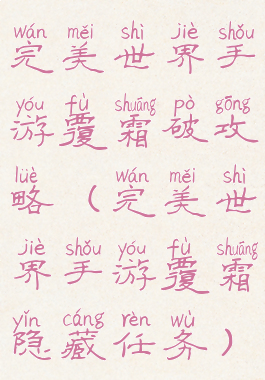 wán měi shì jiè shǒu
完美世界手
yóu fù shuāng pò gōng
游覆霜破攻
lüè wán měi shì
略（完美世
jiè shǒu yóu fù shuāng
界手游覆霜
yǐn cáng rèn wù
隐藏任务）